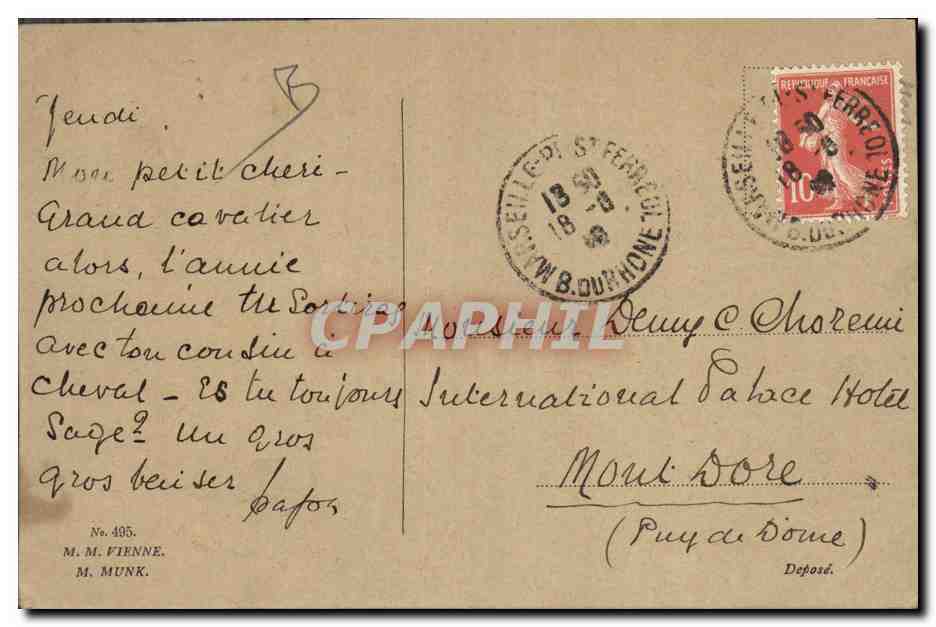 Jeudi
Mon petit cheri -
Grand cavalier
alors, l'année
prochaine tu sortiras
avec ton cousin à
cheval - Es tu toujours
Sage? Un gros
gros baiser
No. 495.
M. M. VIENNE.
M. MUNK.
REPUBLIQUE FRANÇAISE
10
MARSEILLE-PL ST FERREOL
18 50
18 -8
B. DU RHONE
CPAPHIL
Monsieur Demy C Choremi
International Palace Hotel
Mont Dore
(Puy de Dome)
Deposé.